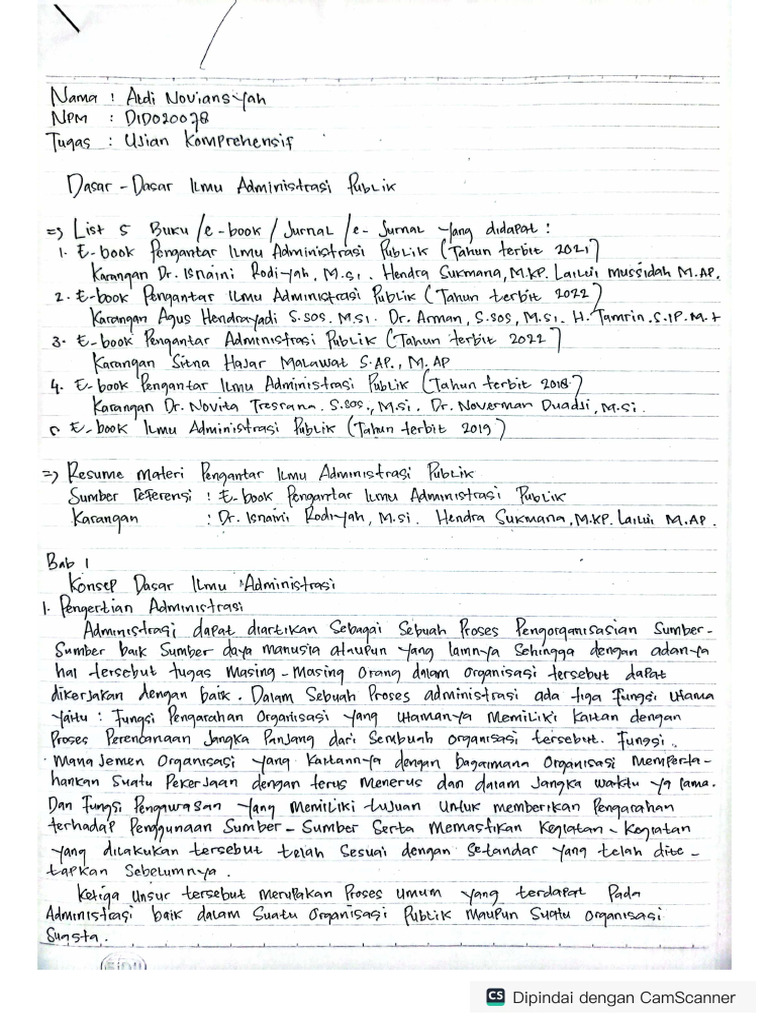 Nama : Aldi Noviansyah
NPM : D1D020078
Tugas : Ujian Komprehensif
Dasar - Dasar Ilmu Administrasi Publik
=> List 5 Buku / e-book / Jurnal / e- Jurnal yang didapat :
1. E-book Pengantar Ilmu Administrasi Publik (Tahun terbit 2021)
Karangan Dr. Isnaini Rodiyah, M.Si. Hendra Sukmana, M.KP. Lailui Mussidah M.AP.
2. E-book Pengantar Ilmu Administrasi Publik (Tahun terbit 2022)
Karangan Agus Hendrayadi S.SOS. M.Si. Dr. Arman, S.SOS, M.Si. H. Tamrin. S.IP. M.t
3. E-book Pengantar Administrasi Publik (Tahun terbit 2022)
Karangan Sitna Hajar Malawat S.AP., M.AP
4. E-book Pengantar Ilmu Administrasi Publik (Tahun terbit 2018)
Karangan Dr. Novita Tresiana. S.Sos., M.Si. Dr. Noverman Duadji, M.Si.
5 E-book Ilmu Administrasi Publik (Tahun terbit 2019)
=> Resume Materi Pengantar Ilmu Administrasi Publik
Sumber Referensi : E-book Pengantar Ilmu Administrasi Publik
Karangan : Dr. Isnaini Rodiyah, M.si. Hendra Sukmana, M.KP. Lailui M.AP.
Bab 1
Konsep Dasar Ilmu Administrasi
1. Pengertian Administrasi
Administrasi dapat diartikan Sebagai Sebuah Proses Pengorganisasian Sumber-
Sumber baik Sumber daya manusia ataupun yang lainnya Sehingga dengan adanya
hal tersebut tugas Masing-Masing Orang dalam organisasi tersebut dapat
dikerjakan dengan baik. Dalam Sebuah Proses administrasi ada tiga Fungsi Utama
Yaitu : Fungsi Pengarahan Organisasi yang Utamanya Memiliki kaitan dengan
Proses Perencanaan Jangka Panjang dari Sembuah organisasi tersebut. Fungsi
Manajemen Organisasi yang kaitannya dengan bagaimana Organisasi Memperta-
hankan Suatu Pekerjaan dengan terus Menerus dan dalam Jangka waktu yg lama.
Dan Fungsi Pengawasan yang Memiliki tujuan Untuk memberikan Pengarahan
terhadap Penggunaan Sumber-Sumber Serta Memastikan Kegiatan-Kegiatan
yang dilakukan tersebut telah Sesuai dengan Setandar yang telah dite-
tapkan Sebelumnya.
Ketiga Unsur tersebut Merupakan Proses Umum yang terdapat Pada
Administrasi baik dalam Suatu Organisasi Publik Maupun Suatu organisasi
Suasta.
CS Dipindai dengan CamScanner